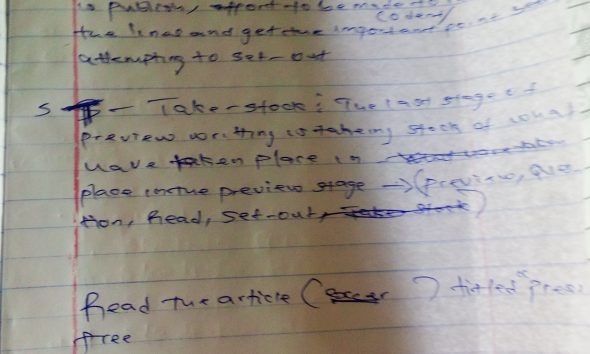 effort to be made to
(coders)
the lines and get the important point you
attempting to set-out
S - Take-stock: The last stage of
preview writting is taking stock of what
have taken place in
place in the preview stage → (preview, Que
tion, Read, set-out, Take stock)
Read the article ( ) titled "Press
free